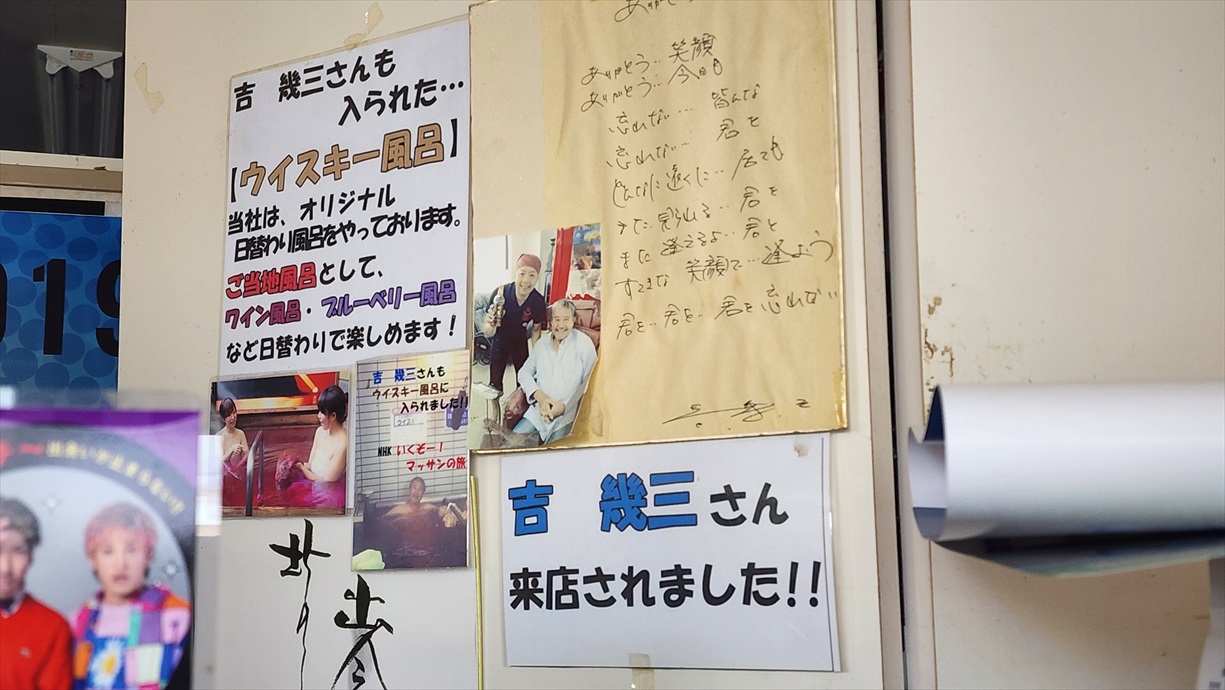 吉 幾三さんも
入られた…
【ウイスキー風呂】
当社は、オリジナル
日替わり風呂をやっております。
ご当地風呂として、
ワイン風呂・ブルーベリー風呂
など日替わりで楽しめます！
吉 幾三さんも
ウイスキー風呂に
入られました!!
NHK いくぞー！
マッサンの旅
ありがとう…笑顔
ありがとう…今日も
忘れない…皆んな
忘れない…君を
どんなに遠くに…居ても
また逢えるよ…君と
すてきな 笑顔で…逢よう
君を…君を…君を忘れない
吉 幾三さん
来店されました!!
019